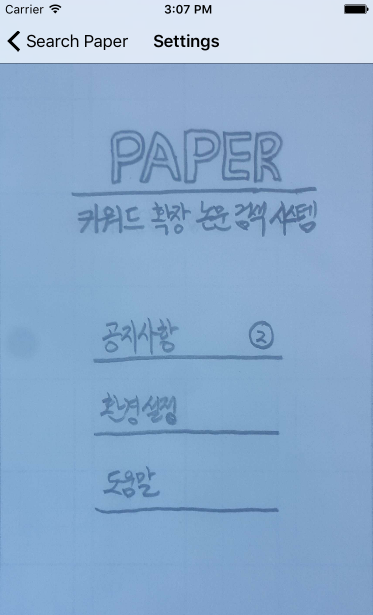 Carrier 3:07 PM
Search Paper Settings
PAPER
키워드 확장 논문 검색 시스템
공지사항 2
환경설정
도움말